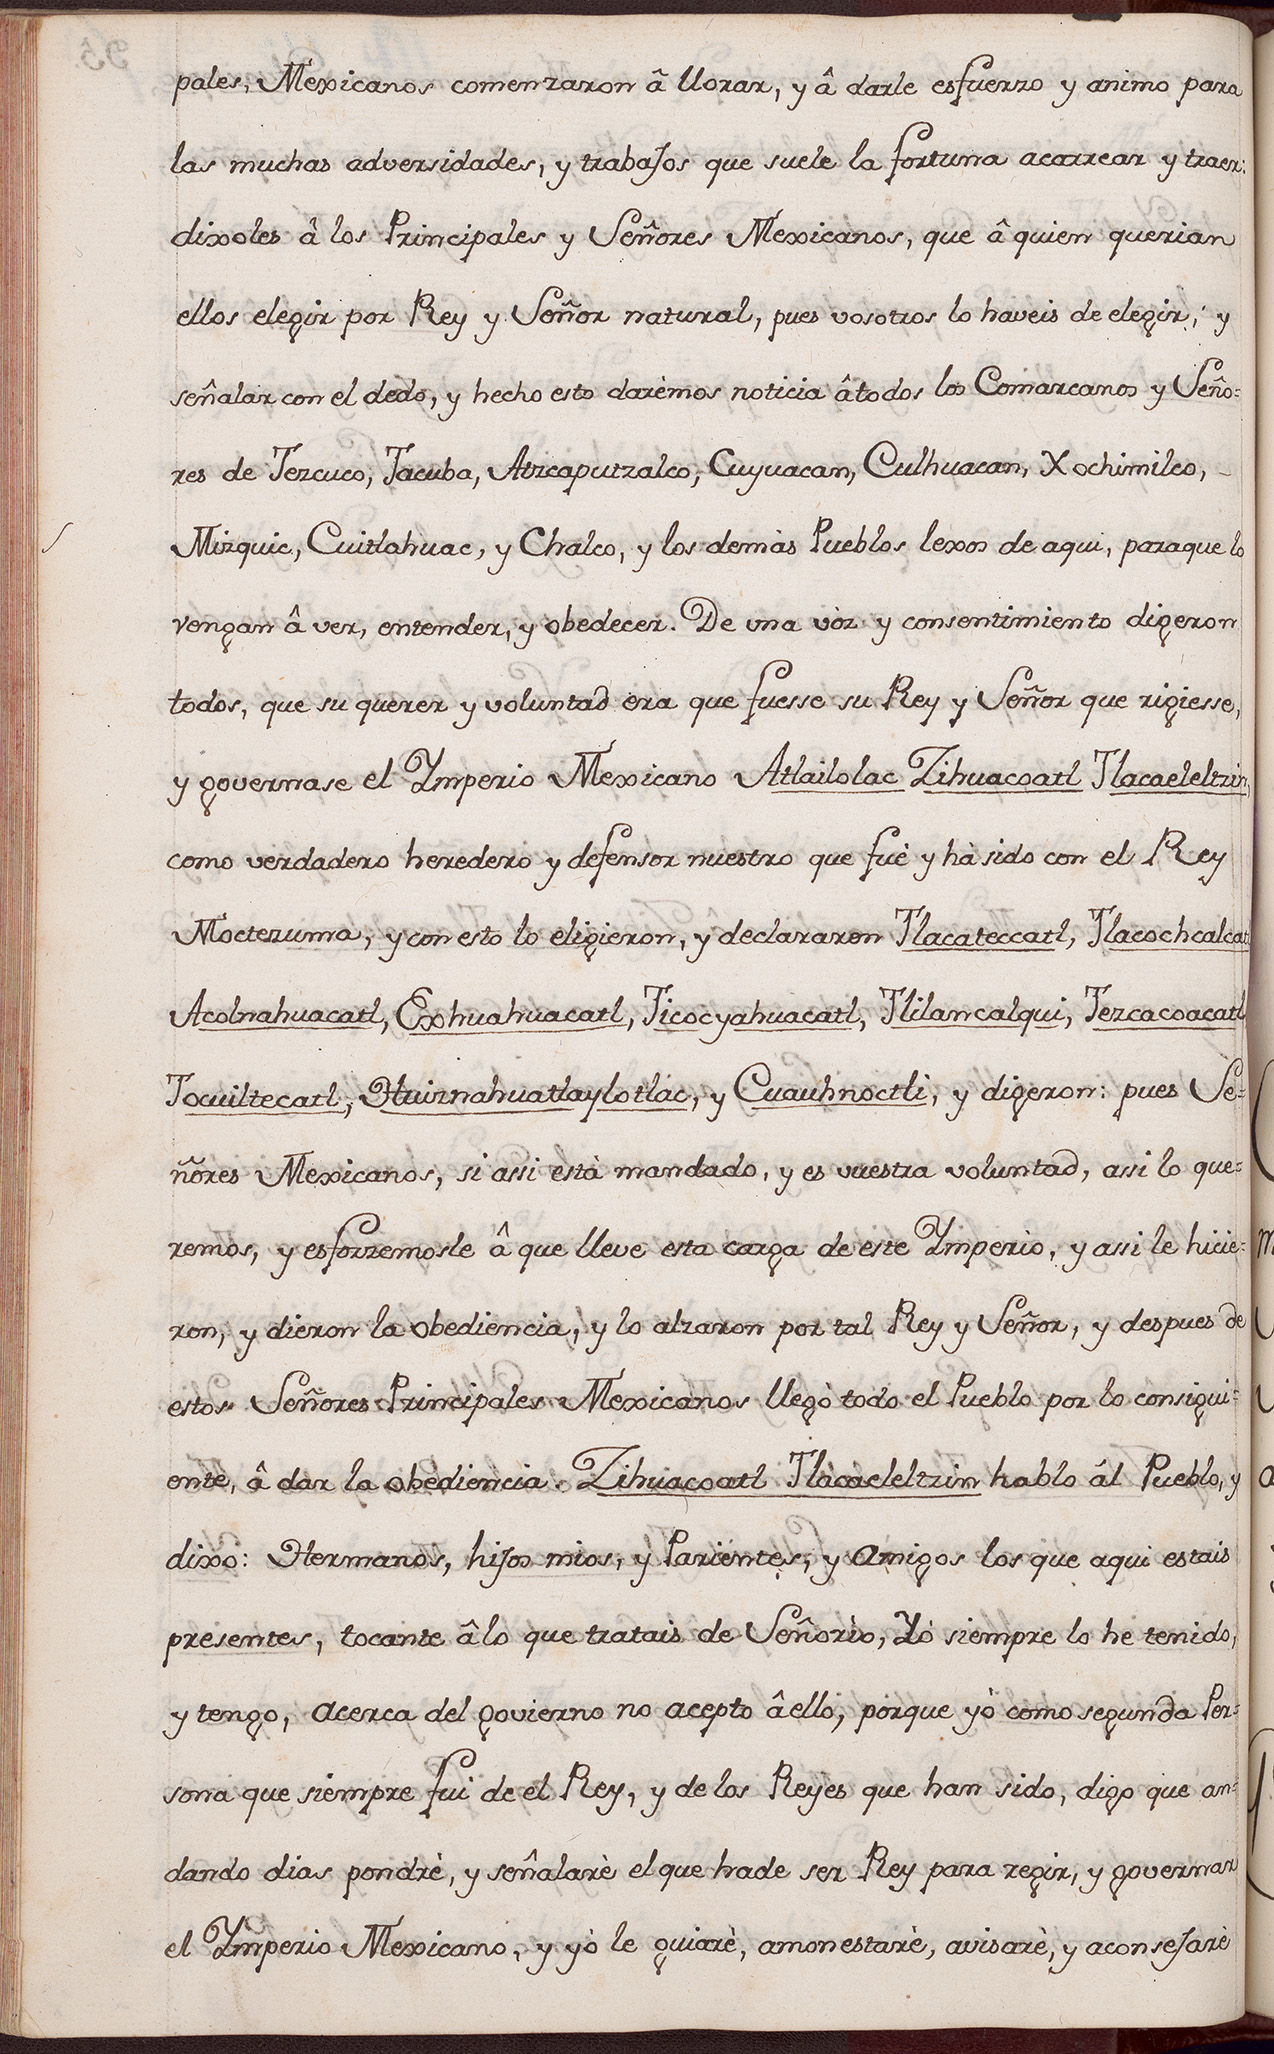 pales, Mexicanos comenzaron â llorar, y â darle esfuerzo y animo para
las muchas adversidades, y trabajos que suele la fortuna acarrear y traer:
dixoles â los Principales y Señores Mexicanos, que â quien querian
ellos elegir por Rey y Señor natural, pues vosotros lo haveis de elegir, y
señalar con el dedo, y hecho esto darèmos noticia â todos los Comarcanos y Seño=
res de Tezcuco, Tacuba, Atzcaputzalco, Cuyuacan, Culhuacan, Xochimilco,
Mizquic, Cuitlahuac, y Chalco, y los demàs Pueblos lexos de aqui, paraque lo
vengan â ver, entender, y obedecer. De una vòz y consentimiento digeron
todos, que su querer y voluntad era que fuesse su Rey y Señor que rigiesse,
y governase el Ymperio Mexicano Atlailolac Zihuacoatl Tlacaeleltzin,
como verdadero heredero y defensor nuestro que fuè y hà sido con el Rey
Moctezuma, y con esto lo eligieron, y declararon Tlacateccatl, Tlacochcalcatl
Acolnahuacatl, Exhuahuacatl, Ticocyahuacatl, Tlilancalqui, Tezcacoacatl
Tocuiltecatl, Huiznahuatlaylotlac, y Cuauhnoctli, y digeron: pues Se=
ñores Mexicanos, si assi està mandado, y es vuestra voluntad, assi lo que=
remos, y esforzemosle â que lleve esta carga de este Ymperio, y assi le hicie=
ron, y dieron la obediencia, y lo alzaron por tal Rey y Señor, y despues de
estos Señores Principales Mexicanos llegò todo el Pueblo por lo consigui=
ente, â dar la obediencia. Zihuacoatl Tlacaeleltzin hablo ál Pueblo, y
dixo: Hermanos, hijos mios, y Parientes, y amigos los que aqui estais
presentes, tocante â lo que tratais de Señorìo, Yò siempre lo he tenido,
y tengo, acerca del govierno no acepto â ello, porque yò como segunda Per=
sona que siempre fui de el Rey, y de los Reyes que han sido, digo que an=
dando dias pondrè, y señalarè el que hade ser Rey para regir, y governar
el Ymperio Mexicano, y yò le guiarè, amonestarè, avisarè, y aconsejarè